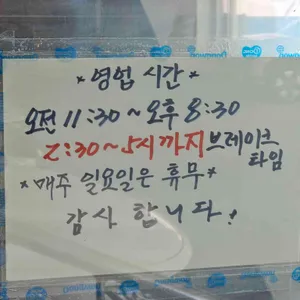 *영업 시간*
오전 11:30~오후 8:30
2:30~5시까지 브레이크
타임
*매주 일요일은 휴무*
감사 합니다!